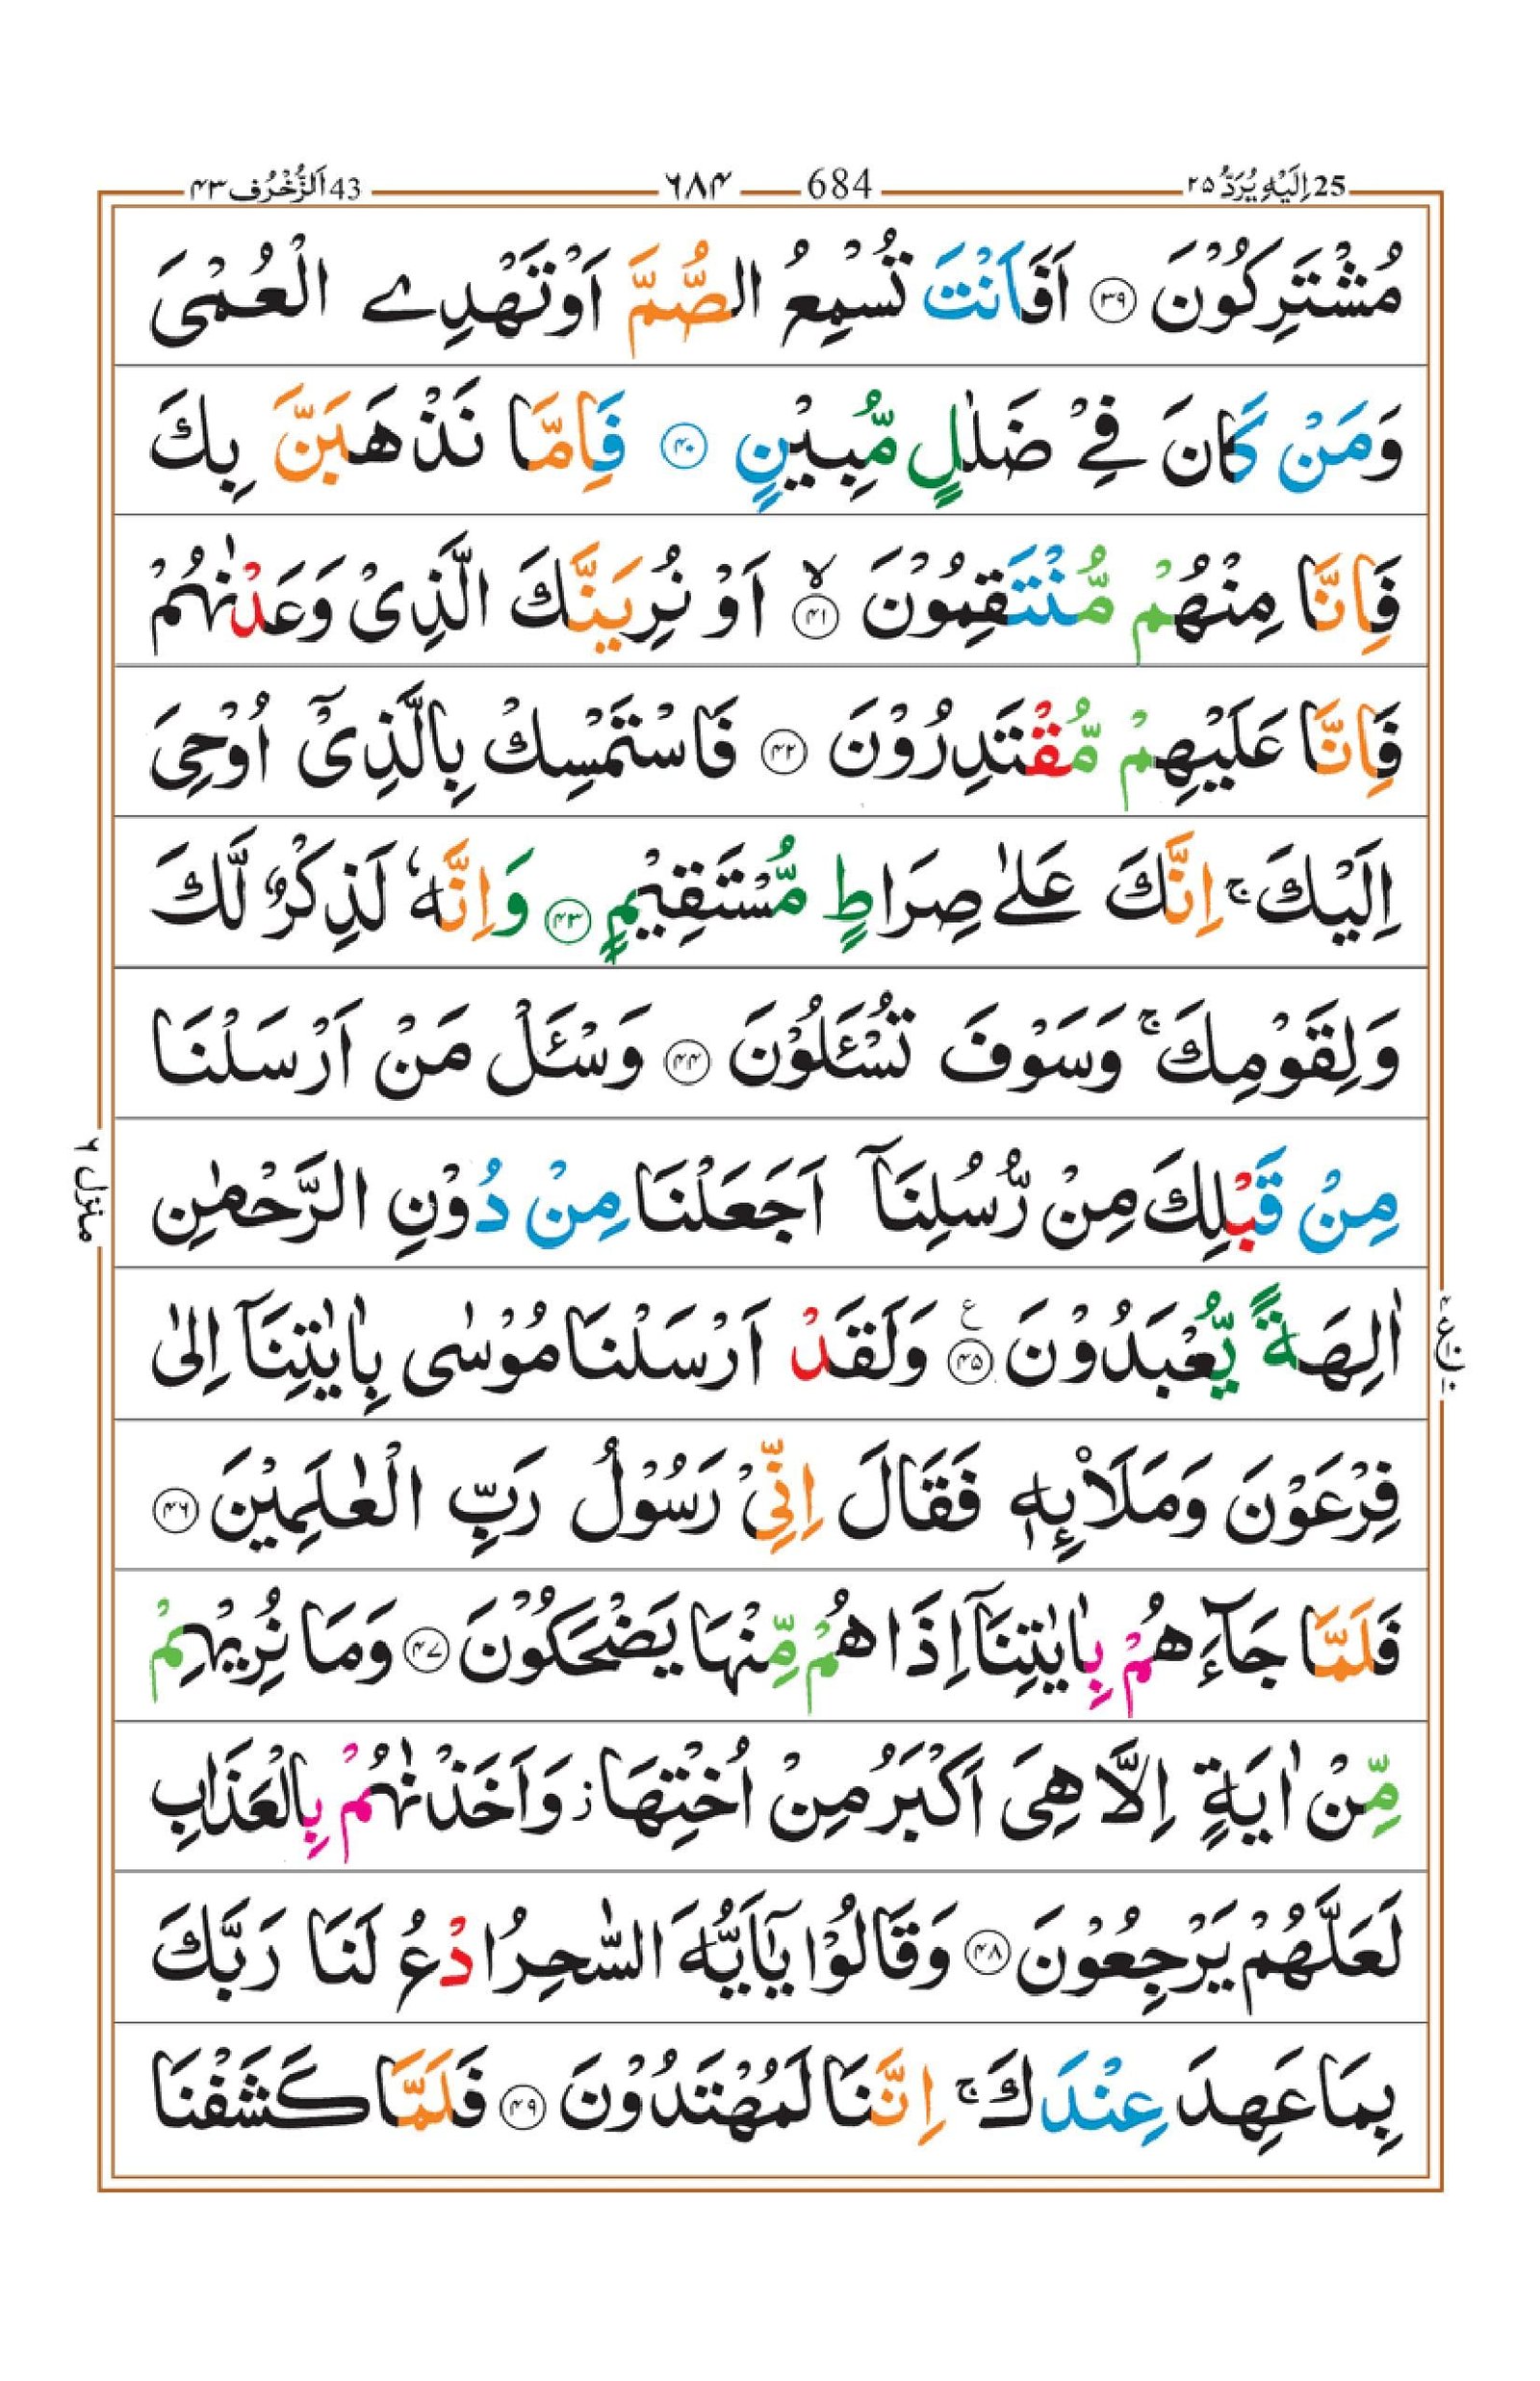 25 اِلَيْهِ يُرَدُّ ٢٥ 684 ٦٨٤ 43 اَلزُّخْرُف ٤٣
مُشْتَرِكُوْنَ ﴿٣٩﴾ اَفَاَنْتَ تُسْمِعُ الصُّمَّ اَوْ تَهْدِے الْعُمْیَ
وَمَنْ كَانَ فِیْ ضَلٰلٍ مُّبِیْنٍ ﴿٤٠﴾ فَاِمَّا نَذْهَبَنَّ بِكَ
فَاِنَّا مِنْهُمْ مُّنْتَقِمُوْنَ ۙ﴿٤١﴾ اَوْ نُرِیَنَّكَ الَّذِیْ وَعَدْنٰهُمْ
فَاِنَّا عَلَیْهِمْ مُّقْتَدِرُوْنَ ﴿٤٢﴾ فَاسْتَمْسِكْ بِالَّذِیْۤ اُوْحِیَ
اِلَیْكَ ۚ اِنَّكَ عَلٰی صِرَاطٍ مُّسْتَقِیْمٍ ﴿٤٣﴾ وَاِنَّهٗ لَذِكْرٌ لَّكَ
وَلِقَوْمِكَ ۚ وَسَوْفَ تُسْـَٔلُوْنَ ﴿٤٤﴾ وَسْـَٔلْ مَنْ اَرْسَلْنَا
مِنْ قَبْلِكَ مِنْ رُّسُلِنَاۤ اَجَعَلْنَا مِنْ دُوْنِ الرَّحْمٰنِ
اٰلِهَةً یُّعْبَدُوْنَ ﴿٤٥﴾ ع وَلَقَدْ اَرْسَلْنَا مُوْسٰی بِاٰیٰتِنَاۤ اِلٰی
فِرْعَوْنَ وَمَلَا۟ىِٕهٖ فَقَالَ اِنِّیْ رَسُوْلُ رَبِّ الْعٰلَمِیْنَ ﴿٤٦﴾
فَلَمَّا جَآءَهُمْ بِاٰیٰتِنَاۤ اِذَا هُمْ مِّنْهَا یَضْحَكُوْنَ ﴿٤٧﴾ وَمَا نُرِیْهِمْ
مِّنْ اٰیَةٍ اِلَّا هِیَ اَكْبَرُ مِنْ اُخْتِهَا ز وَاَخَذْنٰهُمْ بِالْعَذَابِ
لَعَلَّهُمْ یَرْجِعُوْنَ ﴿٤٨﴾ وَقَالُوْا یٰۤاَیُّهَ السّٰحِرُ ادْعُ لَنَا رَبَّكَ
بِمَا عَهِدَ عِنْدَكَ ۚ اِنَّنَا لَمُهْتَدُوْنَ ﴿٤٩﴾ فَلَمَّا كَشَفْنَا
منزل ٦